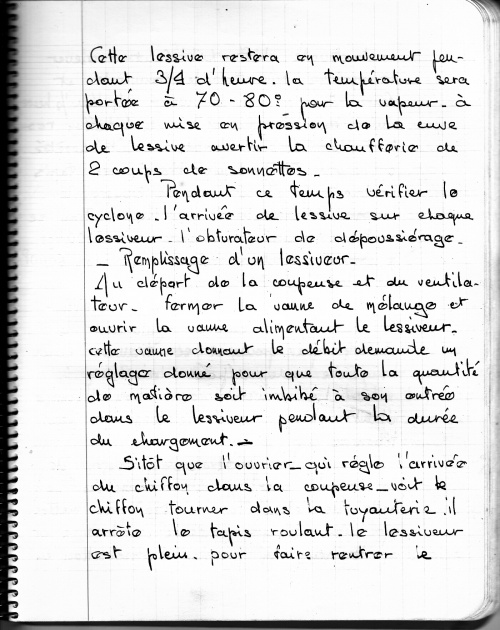 Cette lessive restera en mouvement pen-
dant 3/4 d'heure. la température sera
portée à 70 - 80° par la vapeur. à
chaque mise en pression de la cuve
de lessive avertir la chaufferie de
2 coups de sonnettes.
Pendant ce temps vérifier le
cyclone. l'arrivée de lessive sur chaque
lessiveur. l'obturateur de dépoussiérage.
— Remplissage d'un lessiveur.
Au départ de la coupeuse et du ventila-
teur. fermer la vanne de mélange et
ouvrir la vanne alimentant le lessiveur.
cette vanne donnant le débit demande un
réglage donné pour que toute la quantité
de matière soit imbibé à son entrée
dans le lessiveur pendant la durée
du chargement. —
Sitôt que l'ouvrier_qui règle l'arrivée
du chiffon dans la coupeuse_voit le
chiffon tourner dans la tuyauterie. il
arrète le tapis roulant. le lessiveur
est plein. pour faire rentrer le